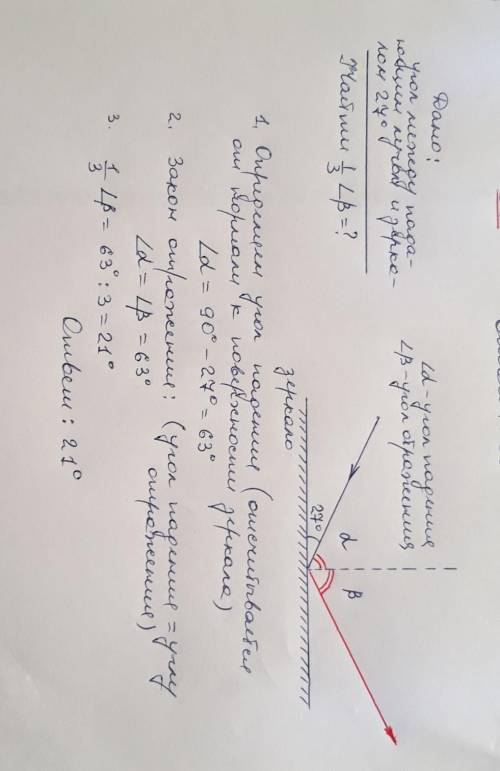 Дано:
угол между пада-
ющим лучом и зерка-
лом 27°
Найти 1/3 ∠β = ?
∠α - угол падения
∠β - угол отражения
зеркало
27°
α
β
1. Определяем угол падения (отсчитывается
от нормали к поверхности зеркала)
∠α = 90° - 27° = 63°
2. Закон отражения: (угол падения = углу
отражения)
∠α = ∠β = 63°
3. 1/3 ∠β = 63° : 3 = 21°
Ответ: 21°